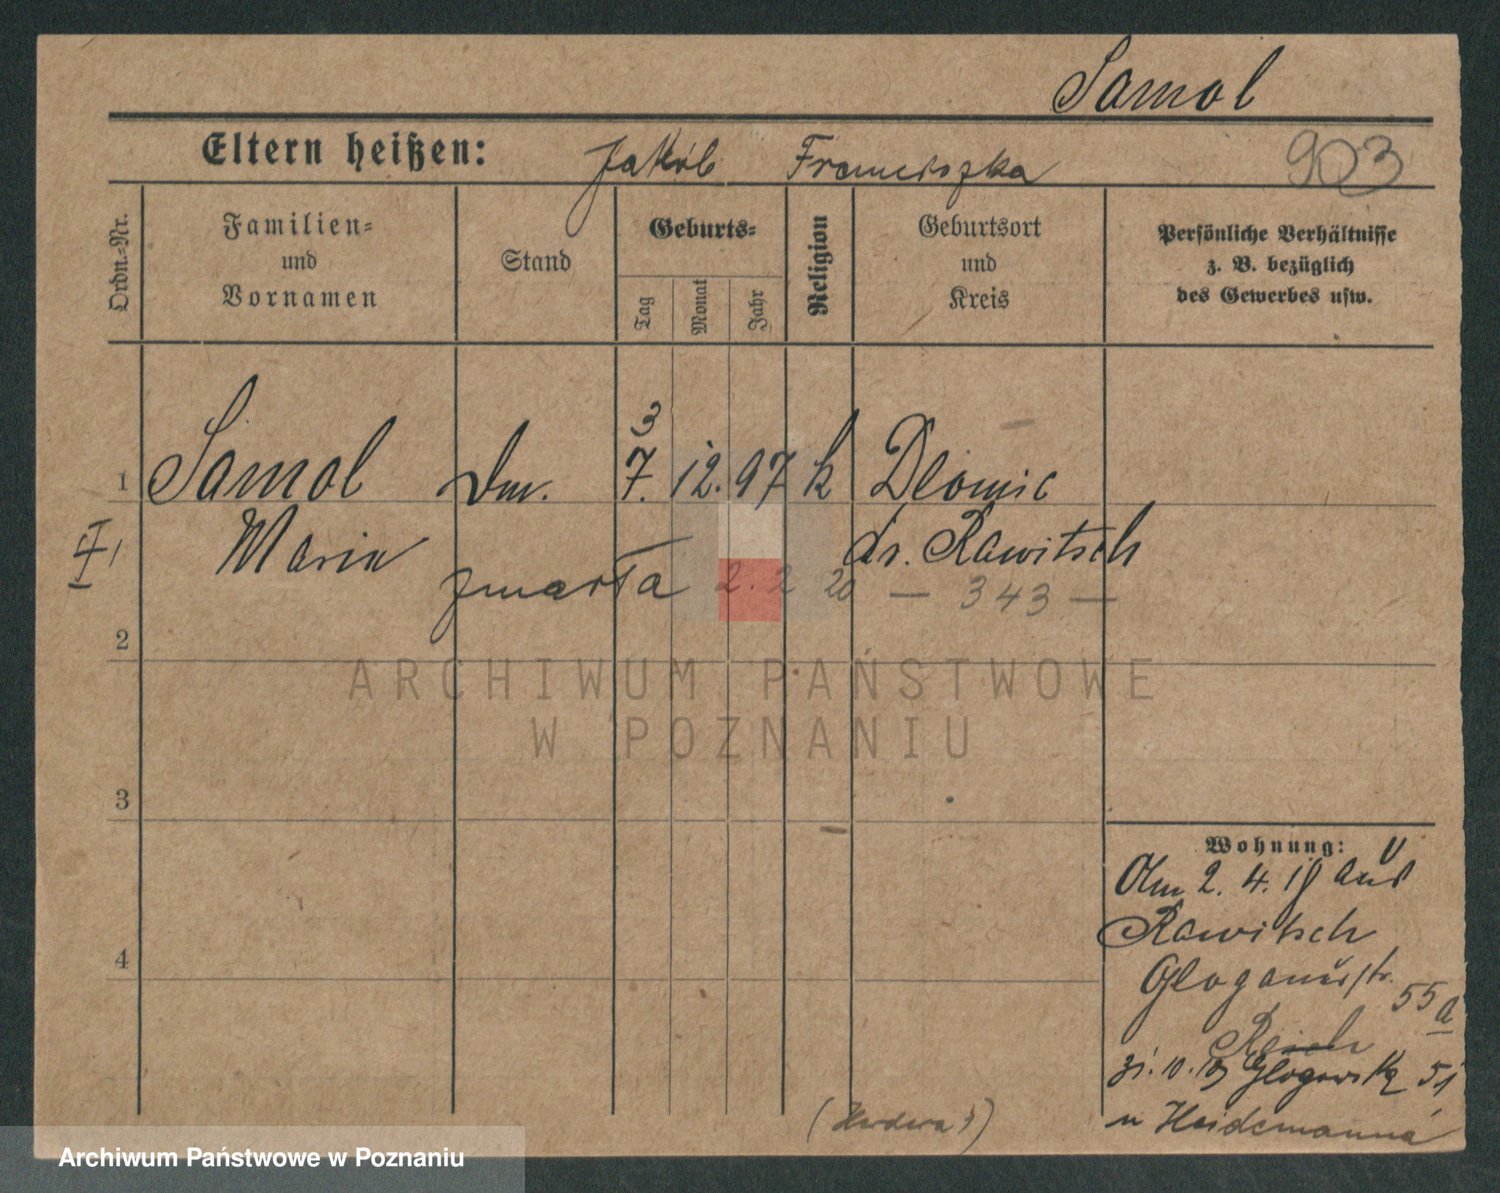 Samol
Eltern heißen: Jakób Franciszka 903
Ordn.-Nr.
Familien-
und
Vornamen
Stand
Geburts-
Tag
Monat
Jahr
Religion
Geburtsort
und
Kreis
Persönliche Verhältnisse
z. B. bezüglich
des Gewerbes usw.
3
1 Samol Dm. 7. 12. 97 k Dlonic
I/1 Maria kr. Rawitsch
zmarła 2. 2 20 — 343 —
2
ARCHIWUM PAŃSTWOWE
W POZNANIU
3
Wohnung:
Am 2. 4. 19 aus
Rawitsch
4
Glogauerstr.
55a
31. 10. 19 Glogowska 51
u Heidemanna
Archiwum Państwowe w Poznaniu